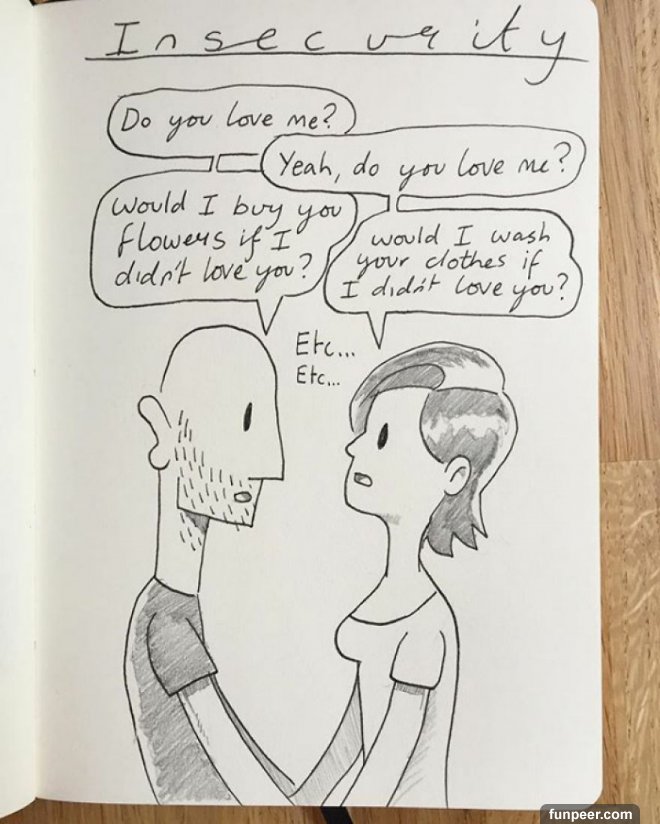 Insecurity
Do you love me?
Yeah, do you love me?
would I buy you
flowers if I
didn't love you?
would I wash
your clothes if
I didn't love you?
Etc...
Etc...
funpeer.com